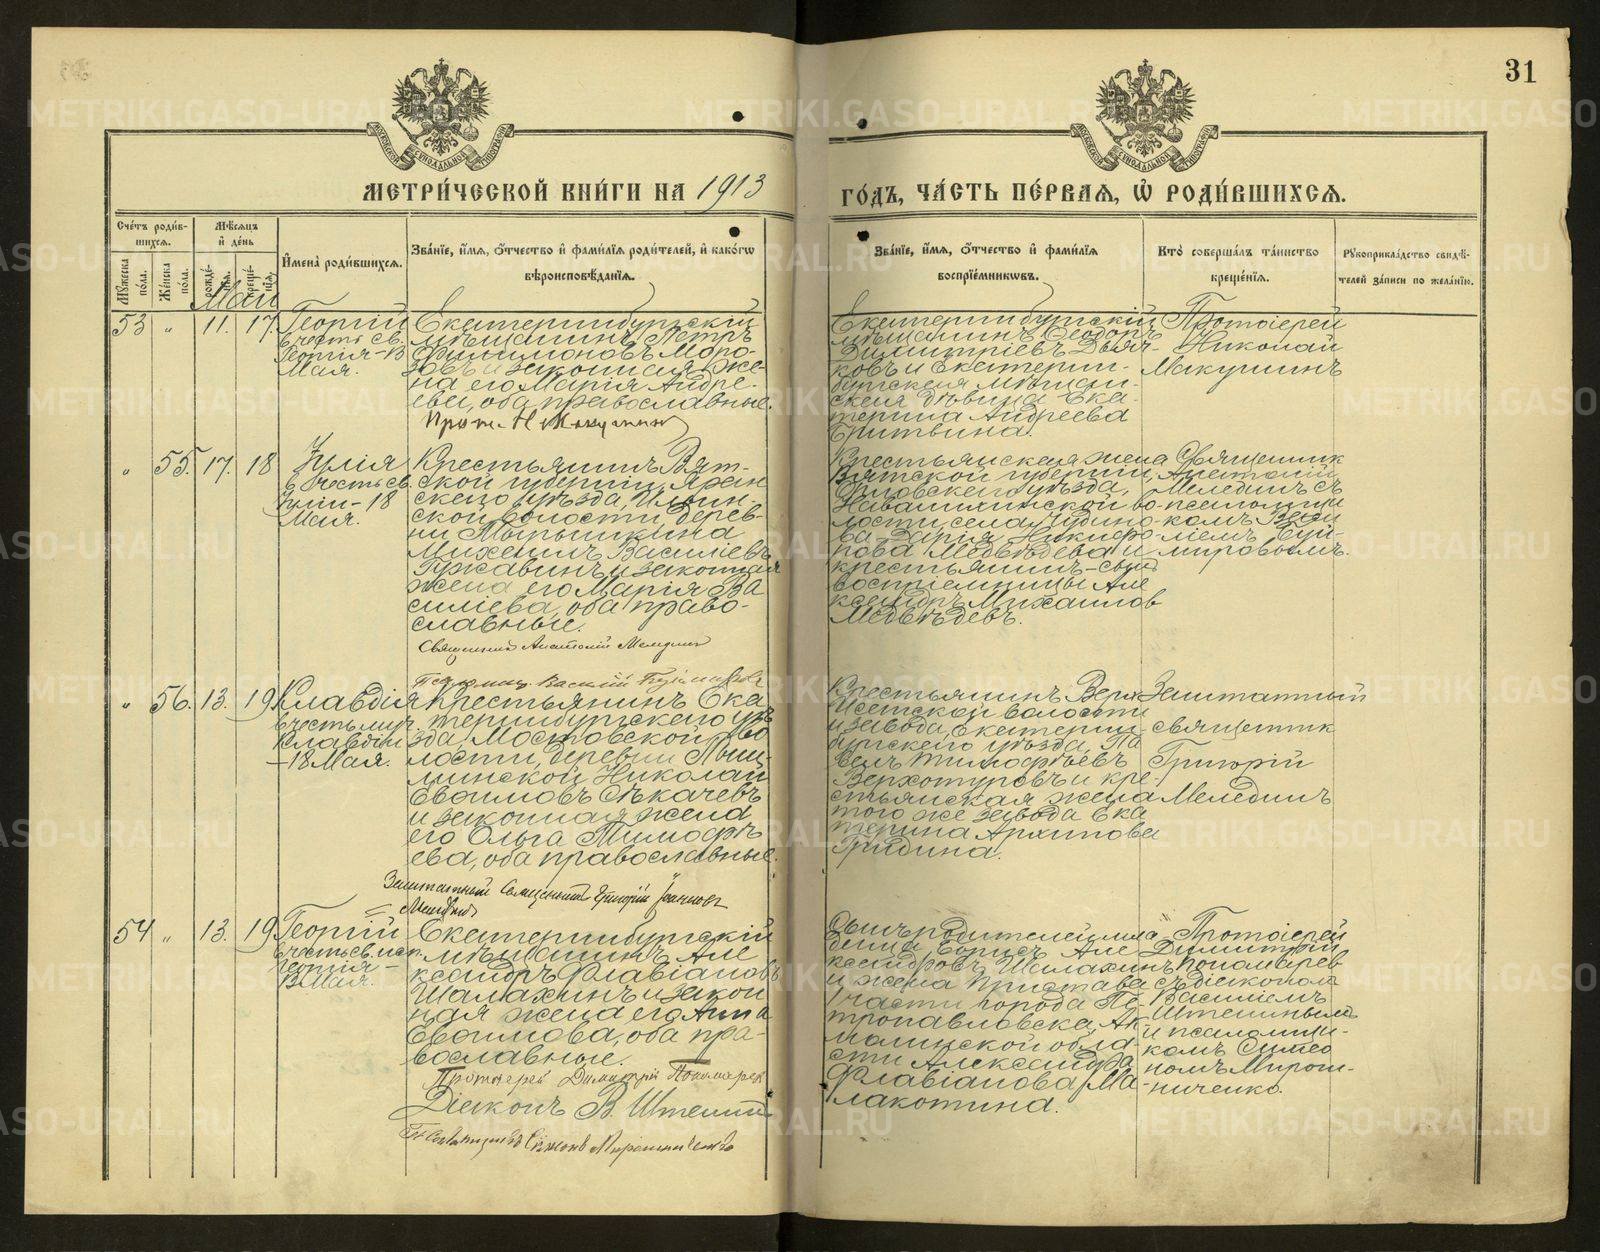 31
МЕТРИ́ЧЕСКОЙ КНИ́ГИ НА 1913
ГО́ДЪ, ЧА́СТЬ ПЕ́РВАЯ, Ѽ РОДИ́ВШИХСЯ.
МОСКОВСКОЙ СѴНОДАЛЬНОЙ ТИПОГРАФІИ
МОСКОВСКОЙ СѴНОДАЛЬНОЙ ТИПОГРАФІИ
Сче́тъ роди́вшихся.
Му́жеска по́ла.
Же́нска по́ла.
Мѣ́сяцъ и де́нь
рожде́нія.
креще́нія.
И҆мена̀ роди́вшихся.
Зва́нїе, и҆́мя, ѻ҆́тчество и҆ фами́лїя роди́телей, и҆ како́гѡ
вѣроисповѣ́данїя.
Зва́нїе, и҆́мя, ѻ҆́тчество и҆ фами́лїя
воспрїе́мникѡвъ.
Кто̀ соверша́лъ та́инство
креще́нїя.
Рукоприкла́дство свидѣ́-
телей за́писи по жела́нїю.
Май
53 " 11. 17.
Георгій
в честь св.
Георгія - 13
Мая.
Екатеринбургскій
мѣщанинъ Петръ
Филимоновъ Моро-
зовъ и законная же-
на его Марія Андре-
ева, оба православные.
Прот. Н. Макушинъ
Екатеринбургскій
мѣщанинъ Ѳеодоръ
Димитріевъ Дьяч-
ковъ и Екатерин-
бургская мѣщан-
ская дѣвица Ека-
терина Андреева
Бритвина.
Протоіерей
Николай
Макушинъ
" 55. 17. 18
Іулія
в честь св.
Іуліи - 18
Мая.
Крестьянинъ Вят-
ской губерніи, Яран
скаго уѣзда, Ильин-
ской волости, дерев-
ни Мырышкина
Михаилъ Василіевъ
Гужавинъ и законная
жена его Марія Ва
силіева, оба право-
славные.
Священникъ Анатолій Меледин
Псаломщ. Василій
Крестьянская жена
Вятской губерніи,
Орловскаго уѣзда,
Навалихинской во-
лости, села Чудино-
ва Дарія Никифо
рова Медвѣдева и
крестьянинъ - сын
воспріемницы Але
ксандръ Михаилов
Медвѣдевъ.
Священник
Анатолій
Меледин с
псаломщи
комъ Васи
ліемъ Буй-
мировымъ.
" 56. 13. 19
Клавдія
в честь муч.
Клавдіи
- 18 Мая.
Крестьянинъ Ека
теринбургскаго уѣ
зда, Мостовской во
лости, деревни Пыш-
минской Николай
Евѳимовъ Сѣкачевъ
и законная жена
его Ольга Тимоѳѣ
ева, оба православные.
Заштатный Священникъ Григорій Іоанновъ
Меледин
Крестьянинъ Верх
Исетской волости
и завода, Екатерин-
бургскаго уѣзда, Па
велъ Тимофѣевъ
Верхотуровъ и кре-
стьянская жена
того же завода Ека
терина Архипова
Грядина.
Заштатный
священник
Григорій
Меледин
54 " 13. 19
Георгій
в честь св. исп.
Георгія -
13 Мая.
Екатеринбургскій
мѣщанинъ Але
ксандръ Флавіановъ
Шалахинъ и закон
ная жена его Анна
Евѳимова, оба пра-
вославные.
Протоіерей Димитрій Пономарев
Діаконъ В. Штенин
Псаломщикъ Симеонъ Мирошниченко
Сынъ родителей мла-
денца Борисъ Але
ксандровъ Шалахинъ
и жена пристава
1 части города Пе-
тропавловска, Ак-
молинской обла-
сти Александра
Флавіанова Ма-
лакотина.
Протоіерей
Димитрій
Пономарев
съ діаконом
Василіемъ
Штениным
и псаломщи-
комъ Симео
номъ Мирош-
ниченко.
METRIKI.GASO-URAL.RU